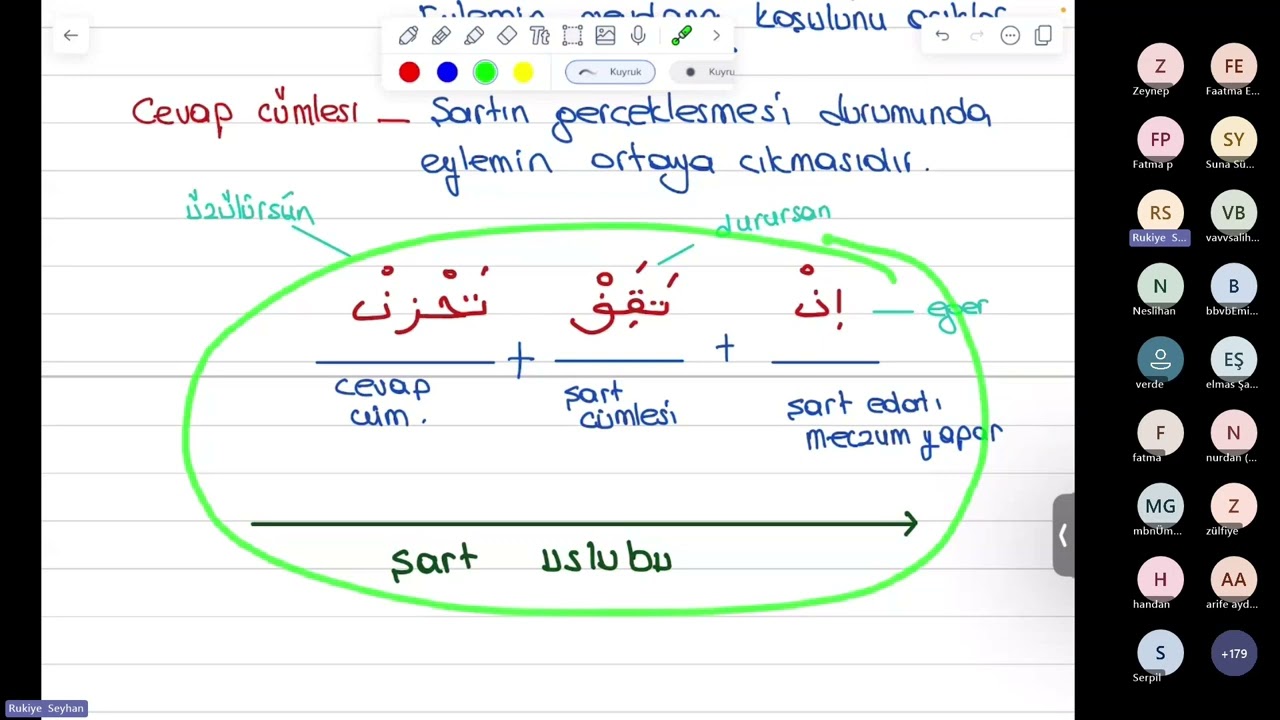 koşulunu
Kuyruk
Kuyru
Cevap cümlesi — Şartın gerçekleşmesi durumunda
eylemin ortaya çıkmasıdır.
üzülürsün
durursan
إنْ تَقِفْ تَحْزنْ
eğer
cevap cüm. + şart cümlesi + şart edatı meczum yapar
şart uslubu
Z
Zeynep
FE
Faatma E...
FP
Fatma p
SY
Suna Sü...
RS
Rukiye S...
VB
vavvsalih...
N
Neslihan
B
bbvbEmi...
verde
EŞ
elmas Şa...
F
fatma
N
nurdan (...
MG
mbnÜm...
Z
zülfiye
H
handan
AA
arife ayd...
S
Serpil
+179
Rukiye Seyhan